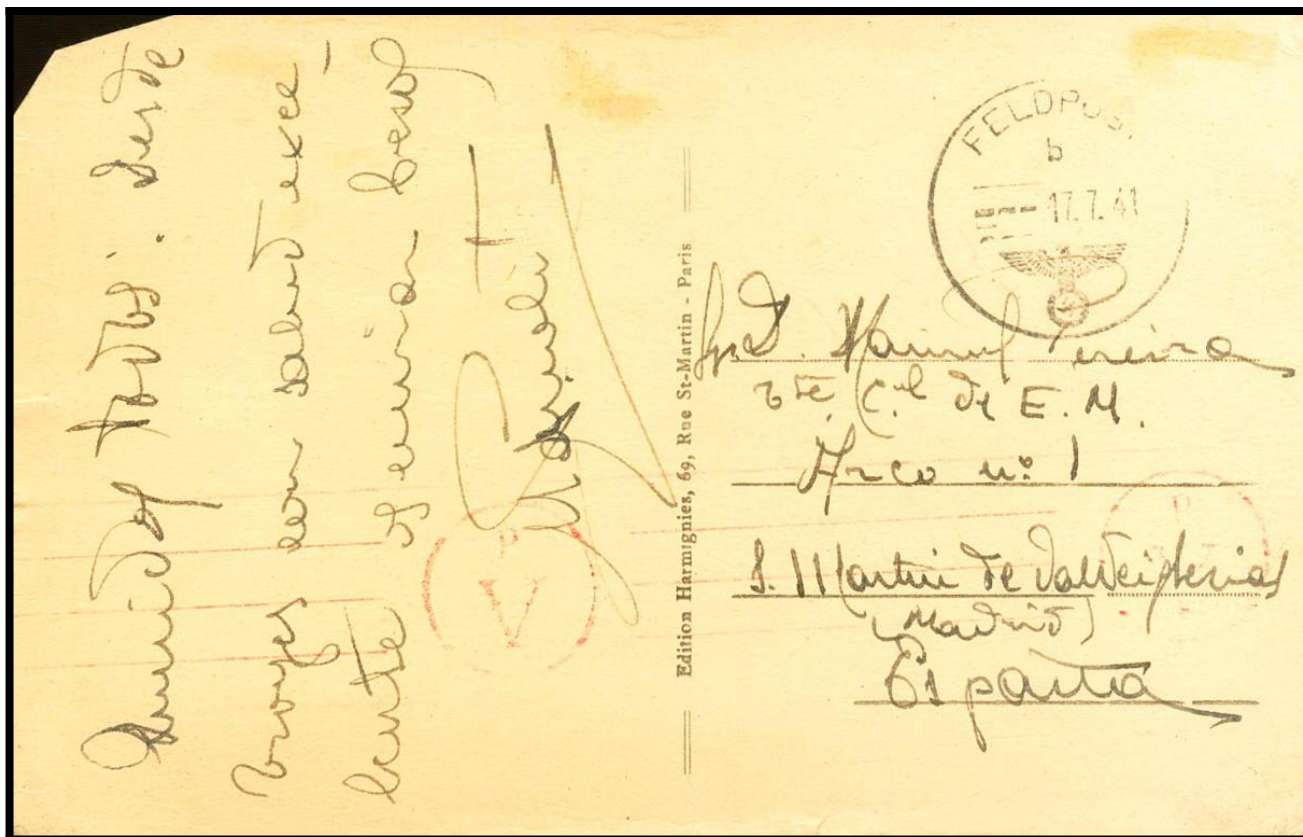 Queridos todos: desde
Troyes con salud exce-
lente os envía besos
Manolín
Edition Harmignies, 69, Rue St-Martin - Paris
FELDPOST
b
17.7.41
Sr. D. Manuel
Tte. C.el de E. M.
Arco nº 1
S. Martin de Valdeiglesias
(Madrid)
España
P
V